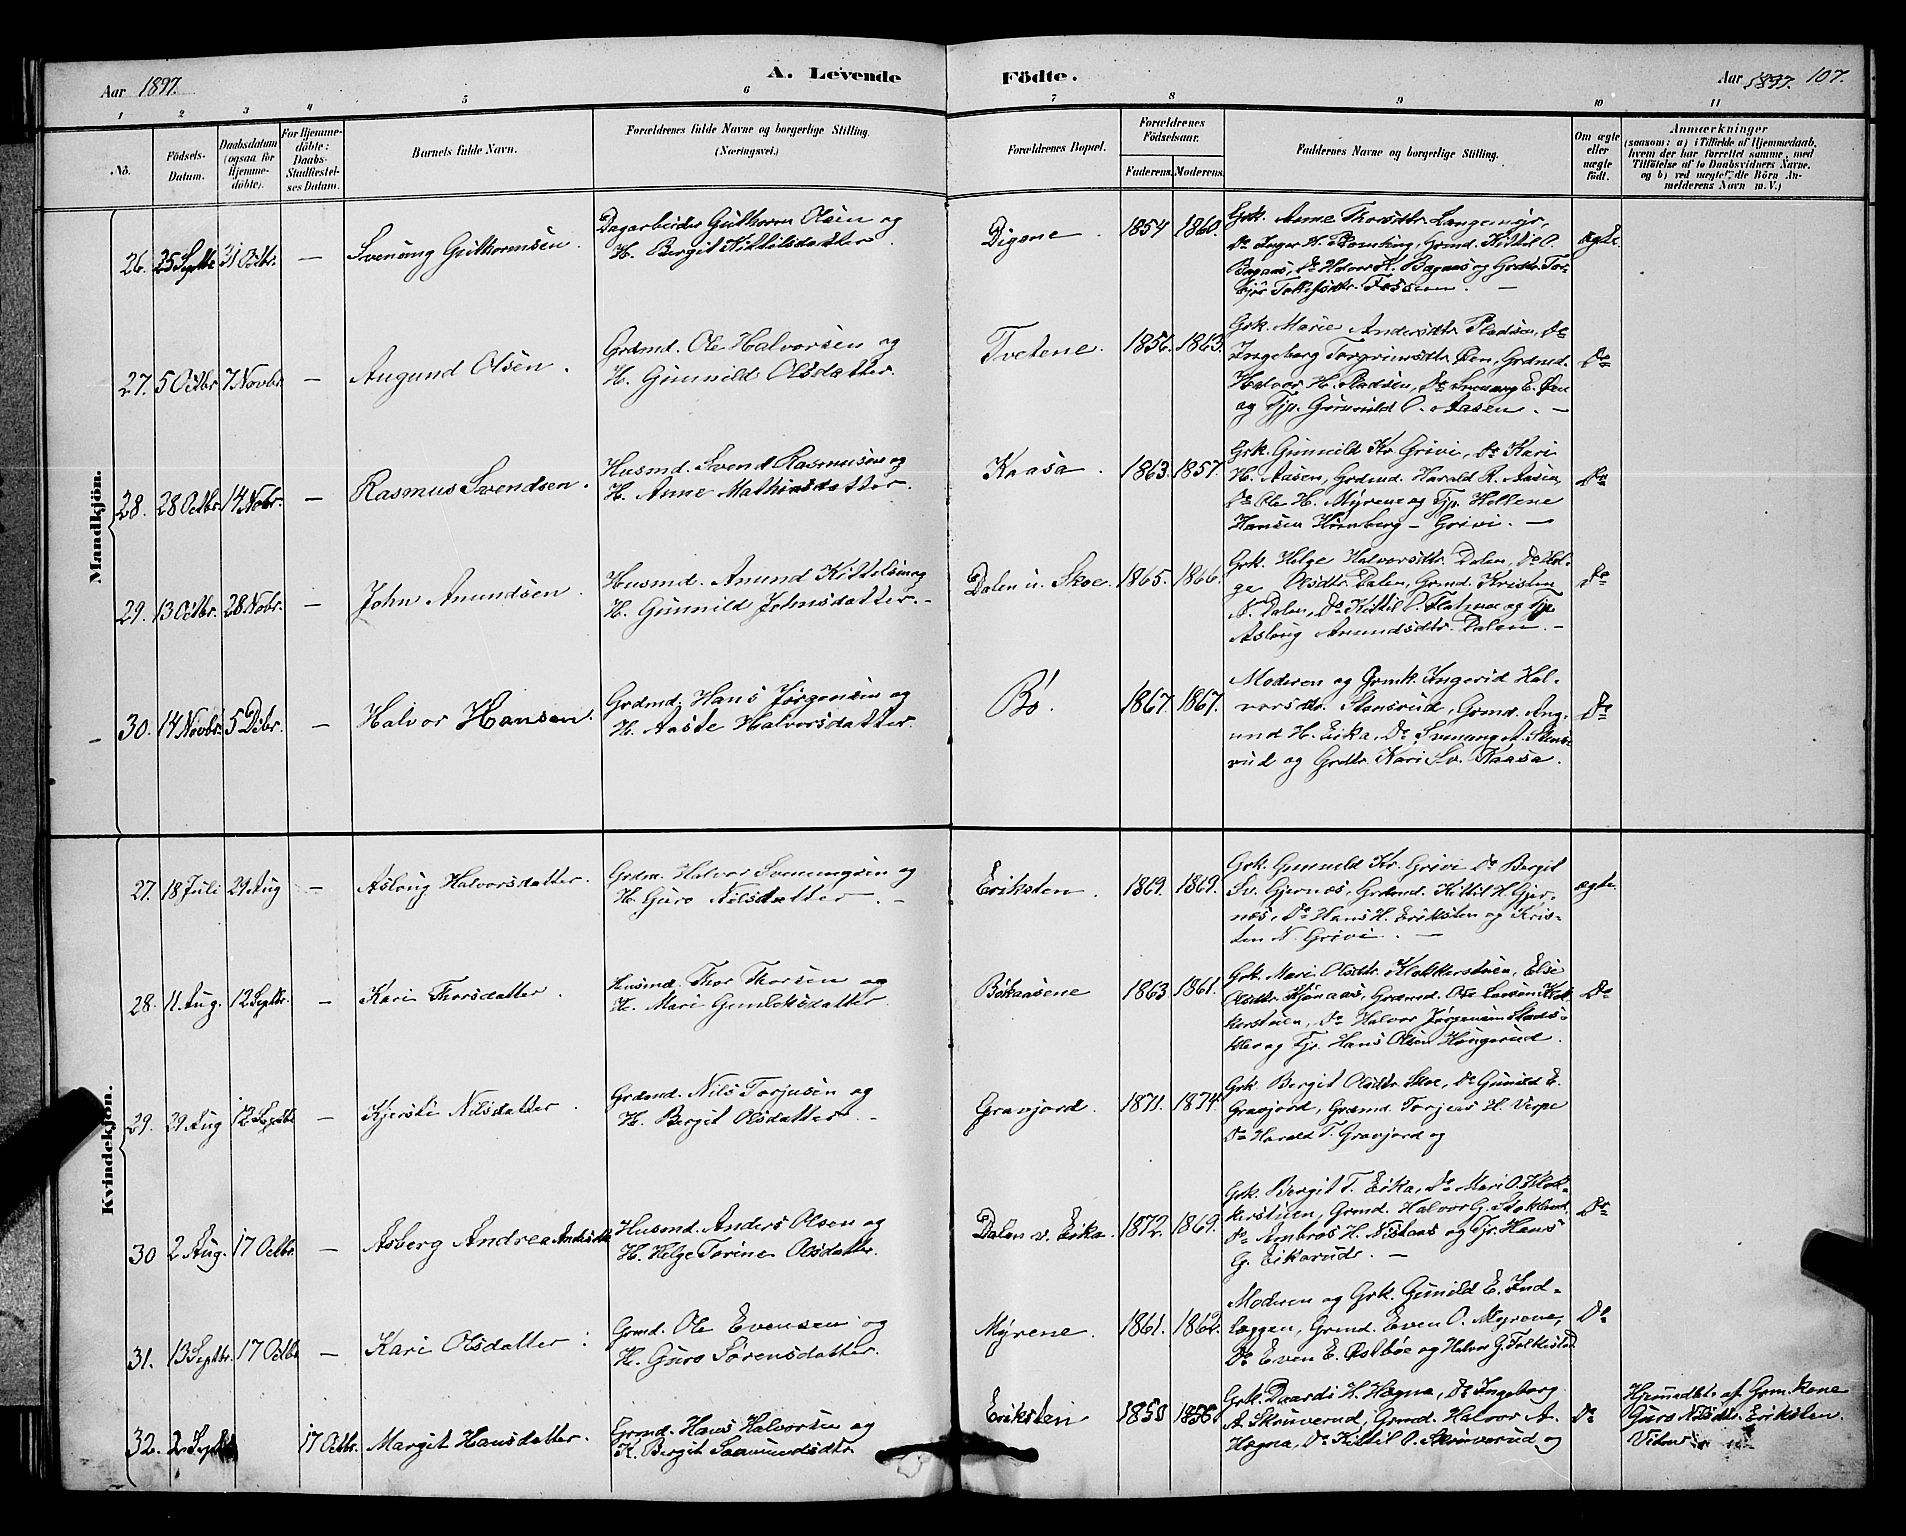 Aar 1897.
A. Levende
Födte.
Aar 1897. 107.
1 2 3 4 5 6 7 8 9 10 11
No.
Födsels-
Datum.
Daabsdatum
(ogsaa for
Hjemme-
döbte).
For Hjemme-
döbte:
Daabs-
Stadfæstel-
ses Datum.
Barnets fulde Navn.
Forældrenes fulde Navne og borgerlige Stilling.
(Næringsvei.)
Forældrenes Bopæl.
Forældrenes
Födselsaar.
Faderens. Moderens.
Faddernes Navne og borgerlige Stilling.
Om ægte
eller
uægte
födt.
Anmærkninger
(saasom: a) i Tilfælde af Hjemmedaab,
hvem der har forrettet samme, med
Tilföielse af to Daabsvidners Navne,
og b) ved uægtefødte Börn An-
melderens Navn m. V.)
Mandkjön.
26. 25 Septbr 31 Octbr. — Svenung Guthormsen.
Dagarbeider Guthorm Olsen og
H. Bergit Kittilsdatter.
Digane. 1854 1860.
Grk. Anne Thorsdtr. Langemyr,
Do Inger H. , Grmd. Kittil O.
Bagaas, Do Halvor K. Bagaas og Grdtr. Tor-
Fossum. —
ægte.
27. 5 Octbr 7 Novbr — Augund Olsen.
Grdmd. Ole Halvorsen og
H. Gunnild Olsdatter.
Tvetene. 1856. 1863.
Grk. Marie Andersdtr. Pladsen, Do
Ingeborg Torgrimsdtr. Øen, Grdmd.
Halvor H. Pladsen, Do Svenung E. Øen
og Tjp. Gunnild O. Aasen. —
Do
28. 28 Octbr. 14 Nobr. — Rasmus Svendsen.
Husmd. Svend Rasmusen og
H. Anne Mathiasdatter.
Kaasa. 1863. 1857.
Grk. Gunnild Kr. Grivi, Do Kari
H. Aasen, Grdmd. Harald R. Aasen,
Do Ole H. Myrene og Tjp. Hellene
Hansen — Grivi. —
Do
29. 13 Octbr. 28 Nobr. — John Amundsen.
Husmd. Amund Kittelsen og
H. Gunnild Johnsdatter. –
Dalen u. Skoe. 1865. 1866.
Grk. Helge Halvorsdtr. Dalen, Do Hel-
ge Olsdtr. Dalen, Grmd. Kristen
N. Dalen, Do Kittil O. og Tjp
Aslaug Amundsdtr. Dalen. —
Do
30. 14 Novbr. 5 Dcbr. — Halvor Hansen.
Grdmd. Hans Jørgensen og
H. Aaste Halvorsdatter.
Bø. 1867. 1867.
Moderen og Grmk. Ingerid Hal-
vorsdtr. Stensrud, Grmd. Aug-
und H. Eika, Do Svenung A. Stens-
rud og Grdtr. Kari Sv. Kaasa.
Do
Kvindekjön.
27. 18 Juli 29 Aug — Aslaug Halvorsdatter.
Grdm. Halvor Svenungsen og
H. Guro Nilsdatter. –
Eriksten. 1869. 1869.
Grk. Gunnild Kr. Grivi Do Bergit
Sv. Gjernes, Grdmd. Kittil H. Gjer-
nes, Do Hans H. Eriksten og Kris-
ten N. Grivi. —
ægte.
28. 11 Aug. 12 Septbr. — Kari Thorsdatter.
Husmd. Thor Thorsen og
H. Mari Gunleksdatter.
Bökaasene 1863 1861.
Grk. Mari Olsdtr. Klokkerstuen, Else
Olsdtr. , Grdmd. Ole Larsen Klok-
kerstuen, Do Halvor Jørgensen Stads-
og Tjp. Hans Olsen Haugerud.
Do
29. 29 Aug 12 Septbr — Kjersti Nilsdatter.
Grdmd. Nils Torjusen og
H. Bergit Olsdatter. –
Gravjord. 1871. 1874.
Grk. Bergit Olsdtr. Skoe, Do Gunild E.
Gravjord, Grdmd. Torjus H. Verpe
Do Harald T. Gravjord og
30 2 Aug. 17 Octbr. — Asberg Andrea Andersdtr
Husmd. Anders Olsen og
H. Helge Torine Olsdatter.
Dalen v. Eika. 1872. 1869.
Grk. Bergit T. Eika, Do Mari O. Klok-
kerstuen, Grmd. Halvor G. ,
Do Ambros H. Nistaas og Tjp. Hans
G. Eikarud. —
Do
31. 13 Septbr. 17 Octbr — Kari Olsdatter.
Grmd. Ole Evensen og
H. Guro Sørensdatter.
Myrene. 1861. 1862.
Moderen og Grk. Gunild E. Ind-
læggen, Grmd. Even O. Myrene,
Do Even E. Østbøe og Halvor G. Folkestad
Do
32. 2 Septbr 17 Octbr. Margit Hansdatter.
Grmd. Hans Halvorsen og
K. Bergit Saamundsdtr
Eriksten 1850 1856
Grk. H. Hægna, Do Ingeborg
A. Skruverud, Grmd. Halvor A.
Hægna, Do Kittil O. Skruverud og
Do
Hjemedbt. af Grm. kone
Guro Nilsdtr. Eriksten.